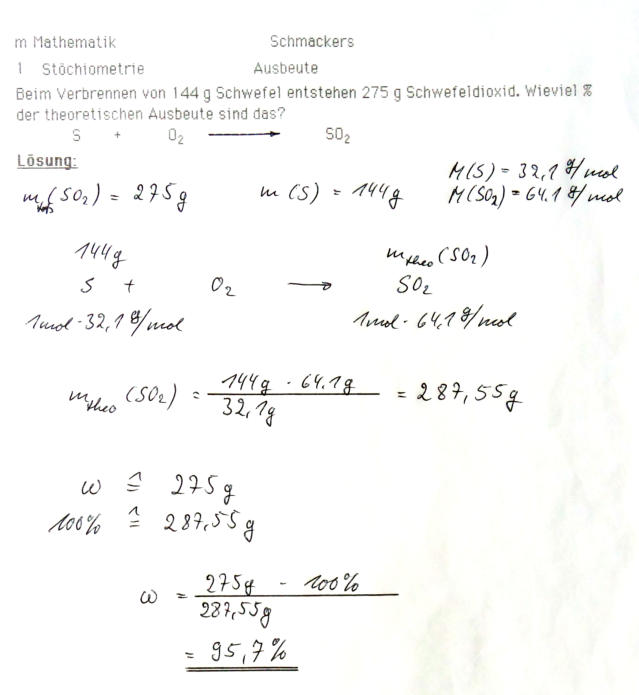 m Mathematik Schmackers
1 Stöchiometrie Ausbeute
Beim Verbrennen von 144 g Schwefel entstehen 275 g Schwefeldioxid. Wieviel %
der theoretischen Ausbeute sind das?
S + O₂ ⟶ SO₂
Lösung:
M(S) = 32,1 g/mol
m (SO₂) = 275g m (S) = 144g M(SO₂) = 64.1 g/mol
144g m_theo (SO₂)
S + O₂ ⟶ SO₂
1mol · 32,1 g/mol 1mol · 64,1 g/mol
m_theo (SO₂) = 144g · 64.1g / 32,1g = 287,55g
ω ≙ 275g
100% ≙ 287,55g
ω = 275g - 100% / 287,55g
= 95,7%